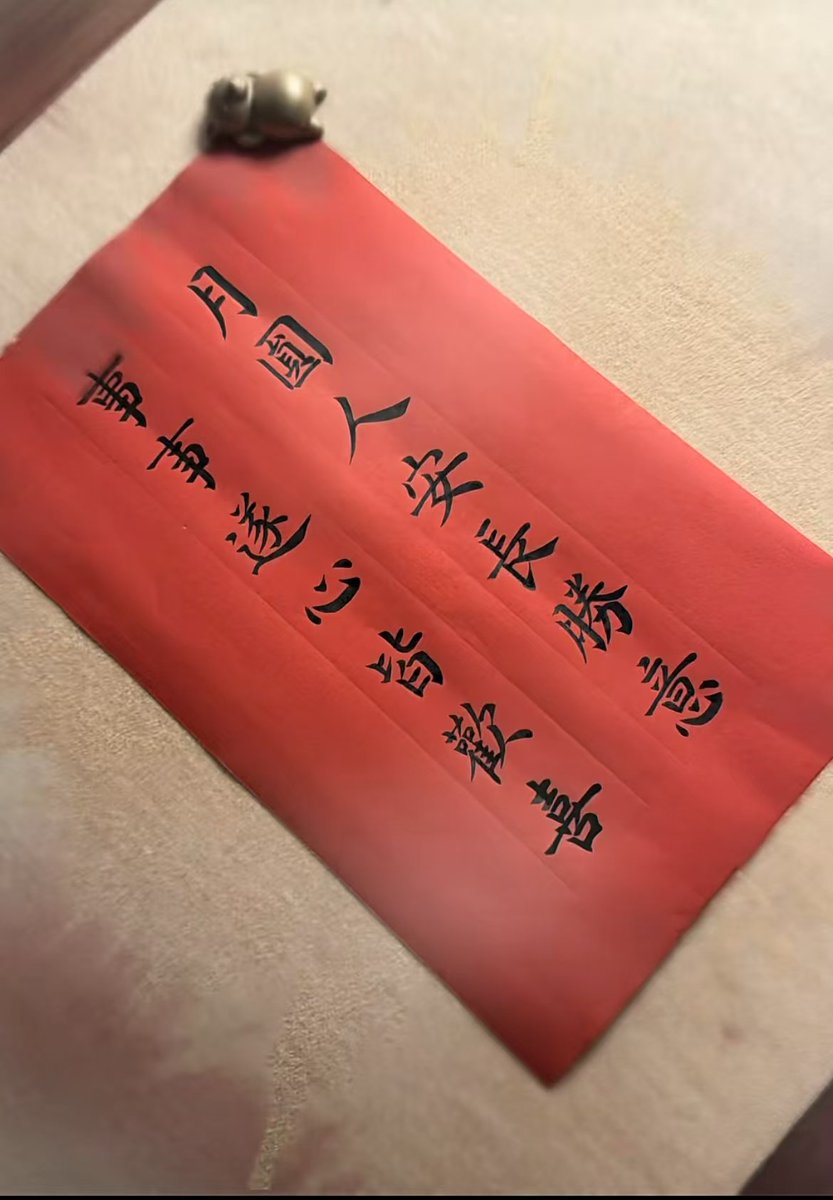 月圓人安長勝意
事事遂心皆歡喜